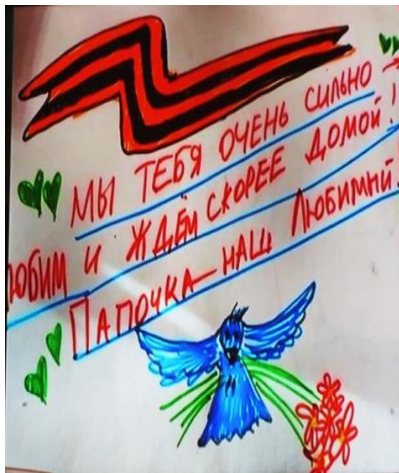 МЫ ТЕБЯ ОЧЕНЬ СИЛЬНО
ЛЮБИМ И ЖДЁМ СКОРЕЕ ДОМОЙ!
ПАПОЧКА-НАШ ЛЮБИМЫЙ!